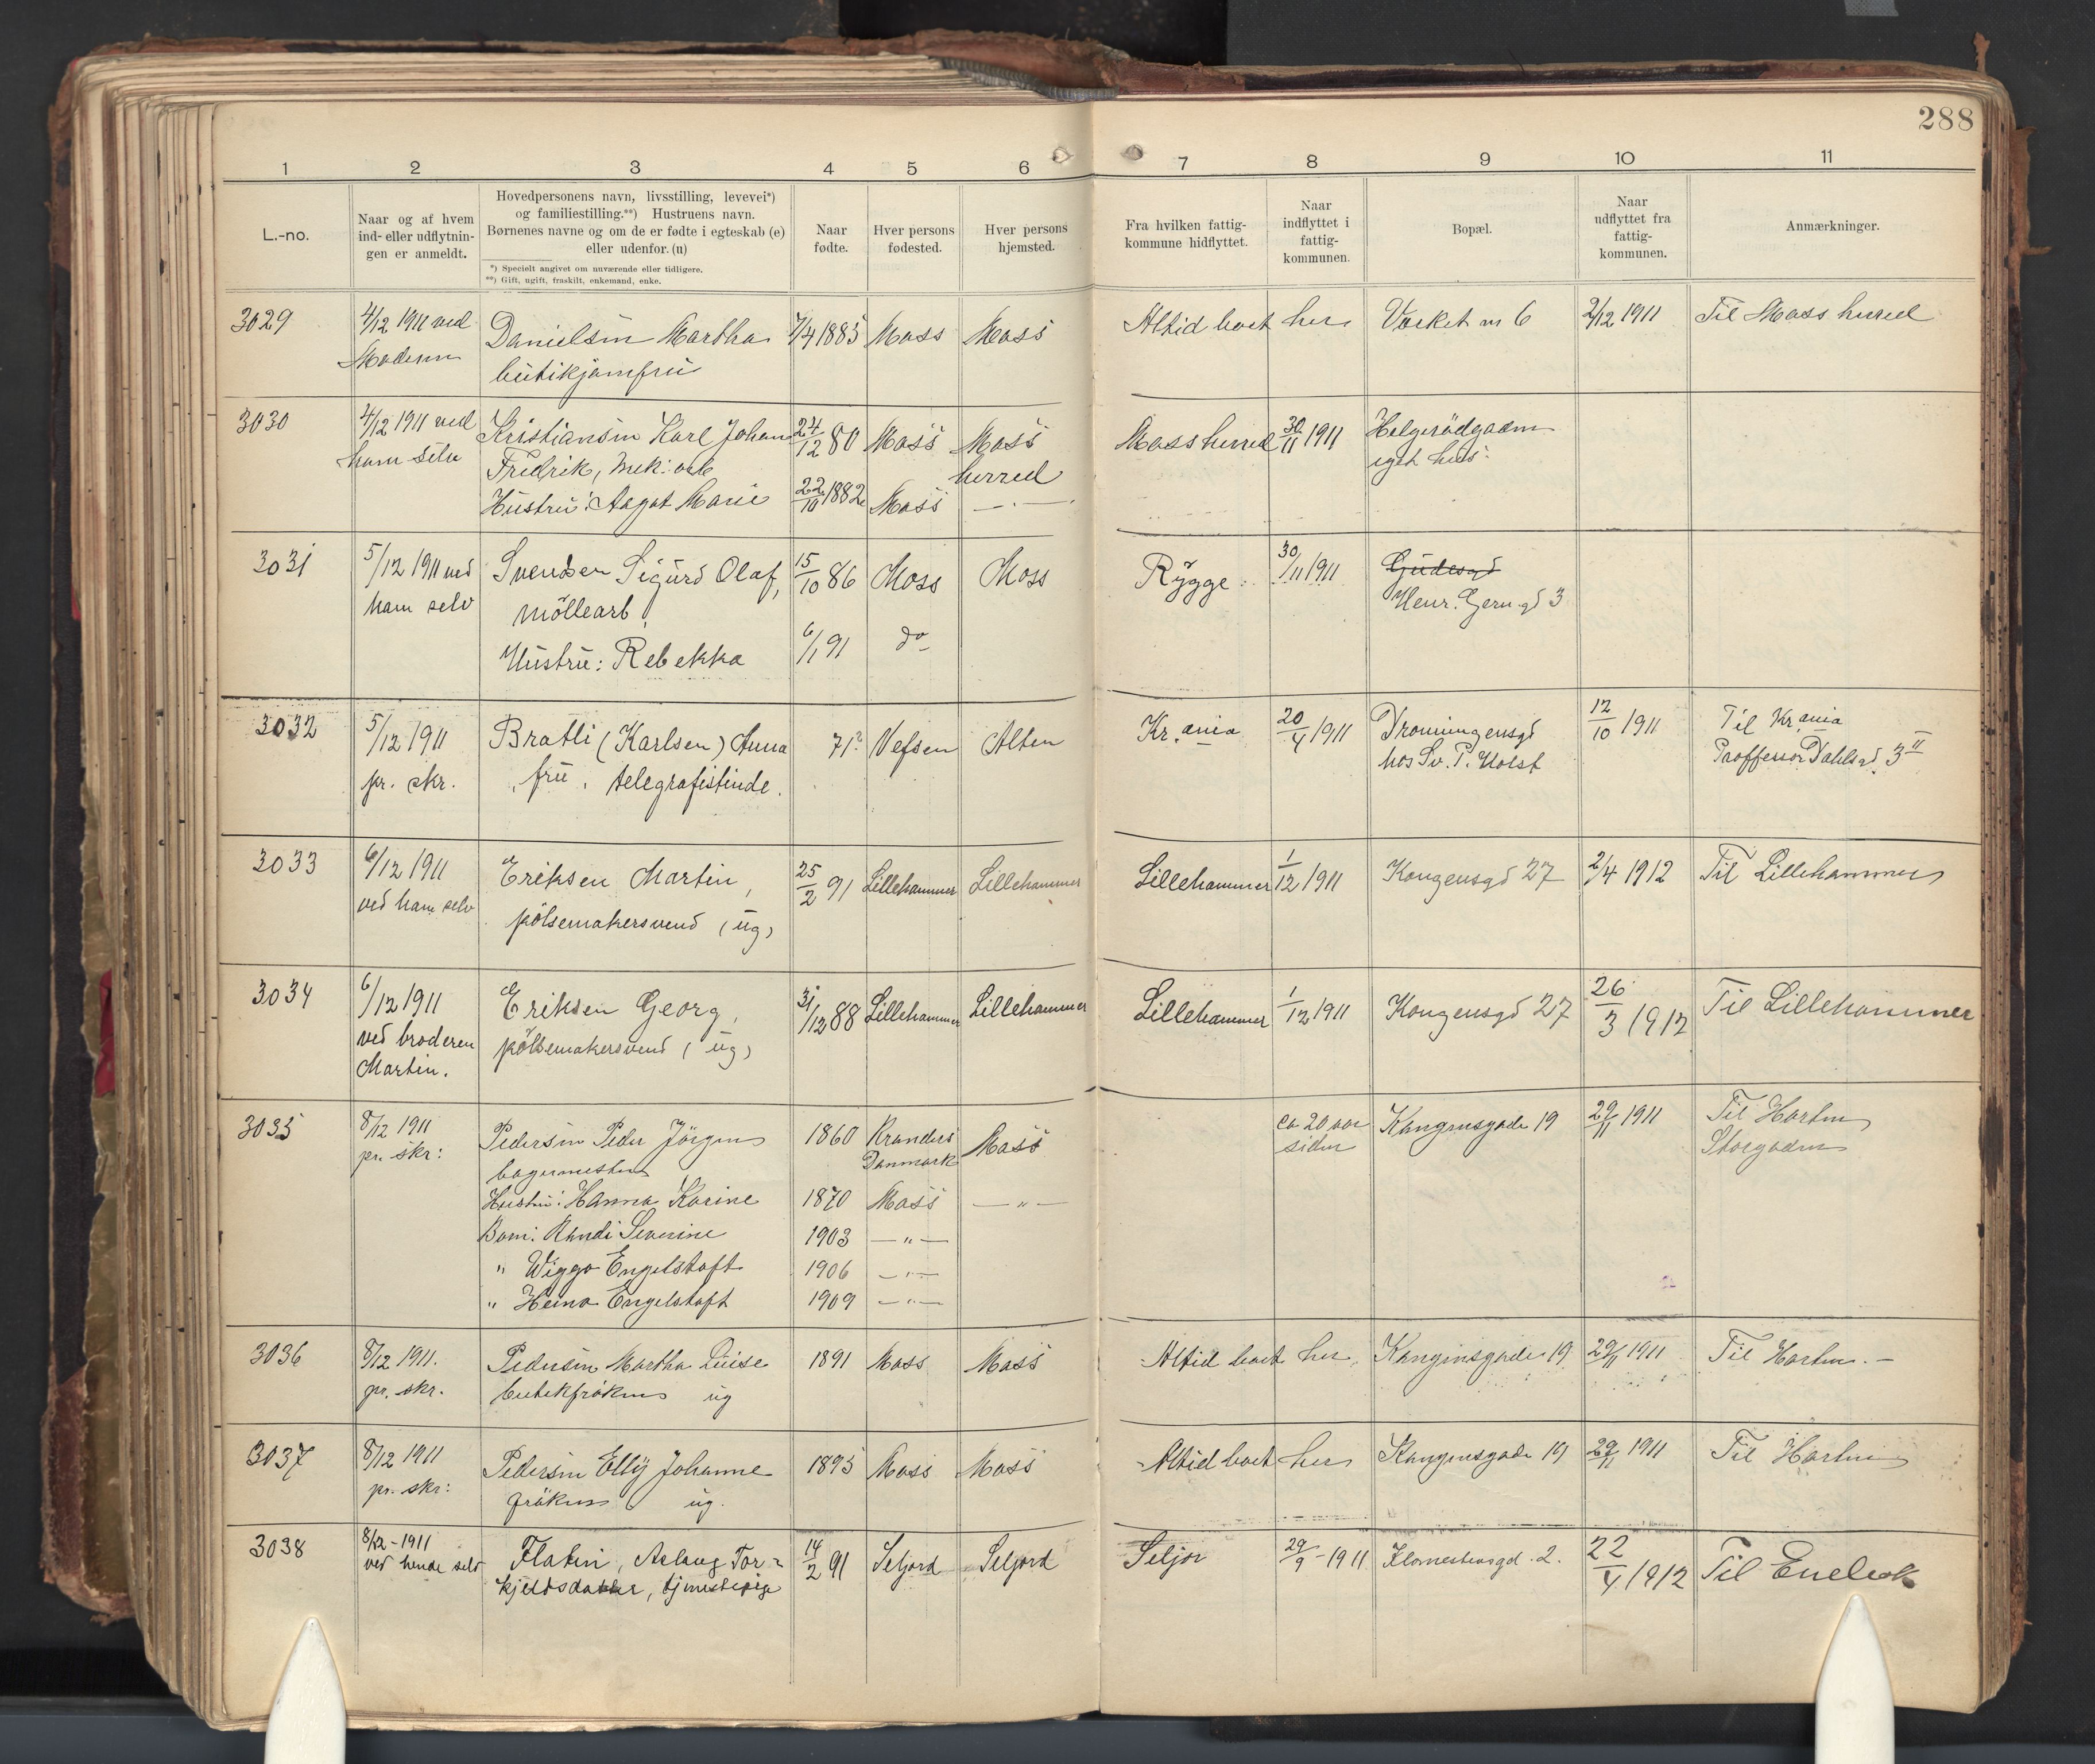 288
1 2 3 4 5 6 7 8 9 10 11
L.-no.
Naar og af hvem
ind- eller udflytnin-
gen er anmeldt.
Hovedpersonens navn, livsstilling, levevei*)
og familiestilling.**) Hustruens navn.
Børnenes navne og om de er fødte i egteskab (e)
eller udenfor. (u)
*) Specielt angivet om nuværende eller tidligere.
**) Gift, ugift, fraskilt, enkemand, enke.
Naar
fødte.
Hver persons
fødested.
Hver persons
hjemsted.
Fra hvilken fattig-
kommune hidflyttet.
Naar
indflyttet i
fattig-
kommunen.
Bopæl.
Naar
udflyttet fra
fattig-
kommunen.
Anmærkninger.
3029 4/12 1911 ved Danielsen Martha 7/4 1885 Moss Moss Altid boet her Værket no 6 2/12 1911 Til Moss herred
Moderen butikjomfru
3030 4/12 1911 ved Kristiansen Karl Johan 24/12 80 Moss Moss Moss herred 30/11 1911 Helgerödgaden
ham selv Fredrik, mek: arb herred eget hus.
Hustru: Aagot Marie 22/10 1882 Moss — " —
3031 5/12 1911 ved Svendsen Sigurd Olaf, 15/10 86 Moss Moss Rygge 30/11 1911 Gudesgd
ham selv möllearb. Henr. Gernsgd 3
Hustru: Rebekka 6/1 91 do
3032 5/12 1911 Bratli (Karlsen) Anna 71? Vefsen Alten Kr.ania 20/4 1911 Dronningensgd 12/10 1911 Til Kr.ania
pr. skr. fru, telegrafistinde. hos Sv. P. Holst Proffessor Dahlsgd. 3 II
3033 6/12 1911 Eriksen Martin, 25/2 91 Lillehammer Lillehammer Lillehammer 1/12 1911 Kongensgd 27 2/4 1912 Til Lillehammer
ved ham selv pölsemakersvend (ug)
3034 6/12 1911 Eriksen Georg, 31/12 88 Lillehammer Lillehammer Lillehammer 1/12 1911 Kongensgd 27 26/3 1912 Til Lillehammer
ved broderen pölsemakersvend (ug)
Martin.
3035 8/12 1911 Pedersen Peder Jörgen 1860 Kranders Moss ca 20 aar Kongensgade 19 29/11 1911 Til Horten
pr. skr: bagermester Danmark siden Storgaden
Hustru: Hanna Karine 1870 Moss — " —
Barn: Randi Severine 1903 — " —
" Wiggo Engelstoft 1906 — " —
" Heino Engelstoft 1909 — " —
3036 8/12 1911. Pedersen Martha Luise 1891 Moss Moss Altid boet her. Kongensgade 19 29/11 1911 Til Horten. –
pr. skr. butikfröken ug
3037 8/12 1911 Pedersen Elly Johanne 1893 Moss Moss Altid boet her Kongensgade 19 29/11 1911 Til Horten
pr. skr: fröken ug.
3038 8/12 - 1911 Flatin, Aslaug Tor- 14/2 91 Seljord Seljord Seljor 29/9 - 1911 Klostersgd. 2. 22/4 1912 Til Enebak
ved hende selv kjeldsdatter, tjenestepige